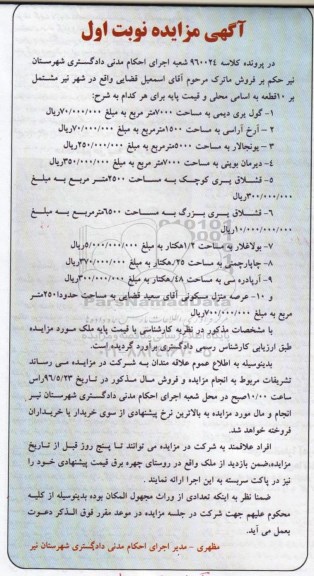 آگهی مزایده نوبت اول
در پرونده کلاسه ۹۶۰۰۲۴ شعبه اجرای احکام مدنی دادگستری شهرستان
نیر حکم بر فروش ماترک مرحوم آقای اسمعیل قضایی واقع در شهر نیر مشتمل
بر ۱۰قطعه به اسامی محلی و قیمت پایه برای هر کدام به شرح:
۱- گول یری دیمی به مساحت ۷۰۰۰متر مربع به مبلغ ۷۰/۰۰۰/۰۰۰ریال
۲- آرخ آراسی به مساحت ۱۵۰۰مترمربع به مبلغ ۷۰/۰۰۰/۰۰۰ریال
۳- یونجالار به مساحت ۵۰۰۰مترمربع به مبلغ ۲۵۰/۰۰۰/۰۰۰ریال
۴- دیرمان بوینی به مساحت ۷۰۰۰متر مربع به مبلغ ۳۵۰/۰۰۰/۰۰۰ریال
۵- قشلاق یری کوچک به مساحت ۲۵۰۰متر مربع به مبلغ
۳۰۰/۰۰۰/۰۰۰ریال
۶- قشلاق یری بزرگ به مساحت ۶۵۰۰مترمربع به مبلغ
۱۰/۰۰۰/۰۰۰/۰۰۰ریال
۷- بولاغلار به مساحت ۱/۲هکتار به مبلغ ۵/۰۰۰/۰۰۰/۰۰۰ریال
۸- چایارچمنی به مساحت ۰/۲۵هکتار به مبلغ ۳۷۰/۰۰۰/۰۰۰ریال
۹- آرپادره سی به مساحت ۰/۴۸هکتار به مبلغ ۳۰۰/۰۰۰/۰۰۰ریال
و ۱۰- عرصه منزل مسکونی آقای سعید قضایی به مساحت حدودا ۲۵۰متر
مربع به مبلغ ۷۰۰/۰۰۰/۰۰۰ریال
با مشخصات مذکور در نظریه کارشناسی با قیمت پایه ملک مورد مزایده
طبق ارزیابی کارشناس رسمی دادگستری برآورد گردیده است.
بدینوسیله به اطلاع عموم علاقه مندان به شرکت در مزایده می رساند
تشریفات مربوط به انجام مزایده و فروش مال مذکور در تاریخ ۹۶/۵/۲۳راس
ساعت ۱۰/۰۰صبح در محل شعبه اجرای احکام مدنی دادگستری شهرستان نیر
انجام و مال مورد مزایده به بالاترین نرخ پیشنهادی از سوی خریدار یا خریداران
فروخته خواهد شد.
افراد علاقمند به شرکت در مزایده می توانند تا پنج روز قبل از تاریخ
مزایده،ضمن بازدید از ملک واقع در روستای چهره برق قیمت پیشنهادی خود را
نیز در پاکت سربسته به این اجرا ارائه نمایند .
ضمنا نظر به اینکه تعدادی از وراث مجهول المکان بوده بدینوسیله از کلیه
محکوم علیهم جهت شرکت در جلسه مزایده در موعد مقرر فوق الذکر دعوت
بعمل می آید.
مظهری - مدیر اجرای احکام مدنی دادگستری شهرستان نیر